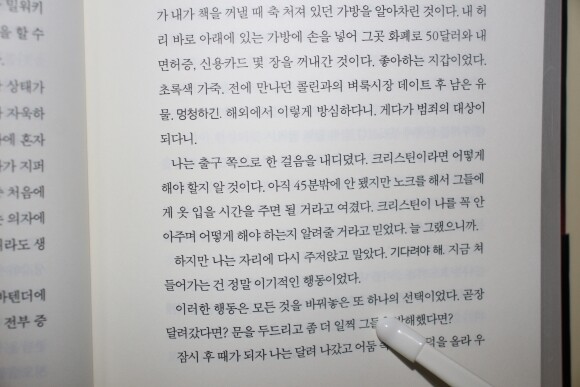 밀워키
을 할 수
상태가
자욱하
에 혼자
가 지퍼
처음에
의자에
이라도 생
바텐더에
전부 중
가 내가 책을 꺼낼 때 축 처져 있던 가방을 알아차린 것이다. 내 허
리 바로 아래에 있는 가방에 손을 넣어 그곳 화폐로 50달러와 내
면허증, 신용카드 몇 장을 꺼내간 것이다. 좋아하는 지갑이었다.
초록색 가죽. 전에 만나던 콜린과의 벼룩시장 데이트 후 남은 유
물. 멍청하긴. 해외에서 이렇게 방심하다니. 게다가 범죄의 대상이
되다니.
나는 출구 쪽으로 한 걸음을 내디뎠다. 크리스틴이라면 어떻게
해야 할지 알 것이다. 아직 45분밖에 안 됐지만 노크를 해서 그들에
게 옷 입을 시간을 주면 될 거라고 여겼다. 크리스틴이 나를 꼭 안
아주며 어떻게 해야 하는지 알려줄 거라고 믿었다. 늘 그랬으니까.
하지만 나는 자리에 다시 주저앉고 말았다. 기다려야 해. 지금 쳐
들어가는 건 정말 이기적인 행동이었다.
이러한 행동은 모든 것을 바꿔놓은 또 하나의 선택이었다. 곧장
달려갔다면? 문을 두드리고 좀 더 일찍 그들 방해했다면?
잠시 후 때가 되자 나는 달려 나갔고 어둠 덕을 올라 우